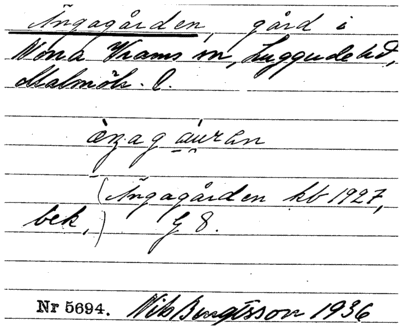 Ängagården, gård i
Norra Vrams sn, Luggude hd,
Malmöh. l.
(Ängagården kb 1927,
bek.) G 8.
Nr 5694. Nils Bengtsson 1936